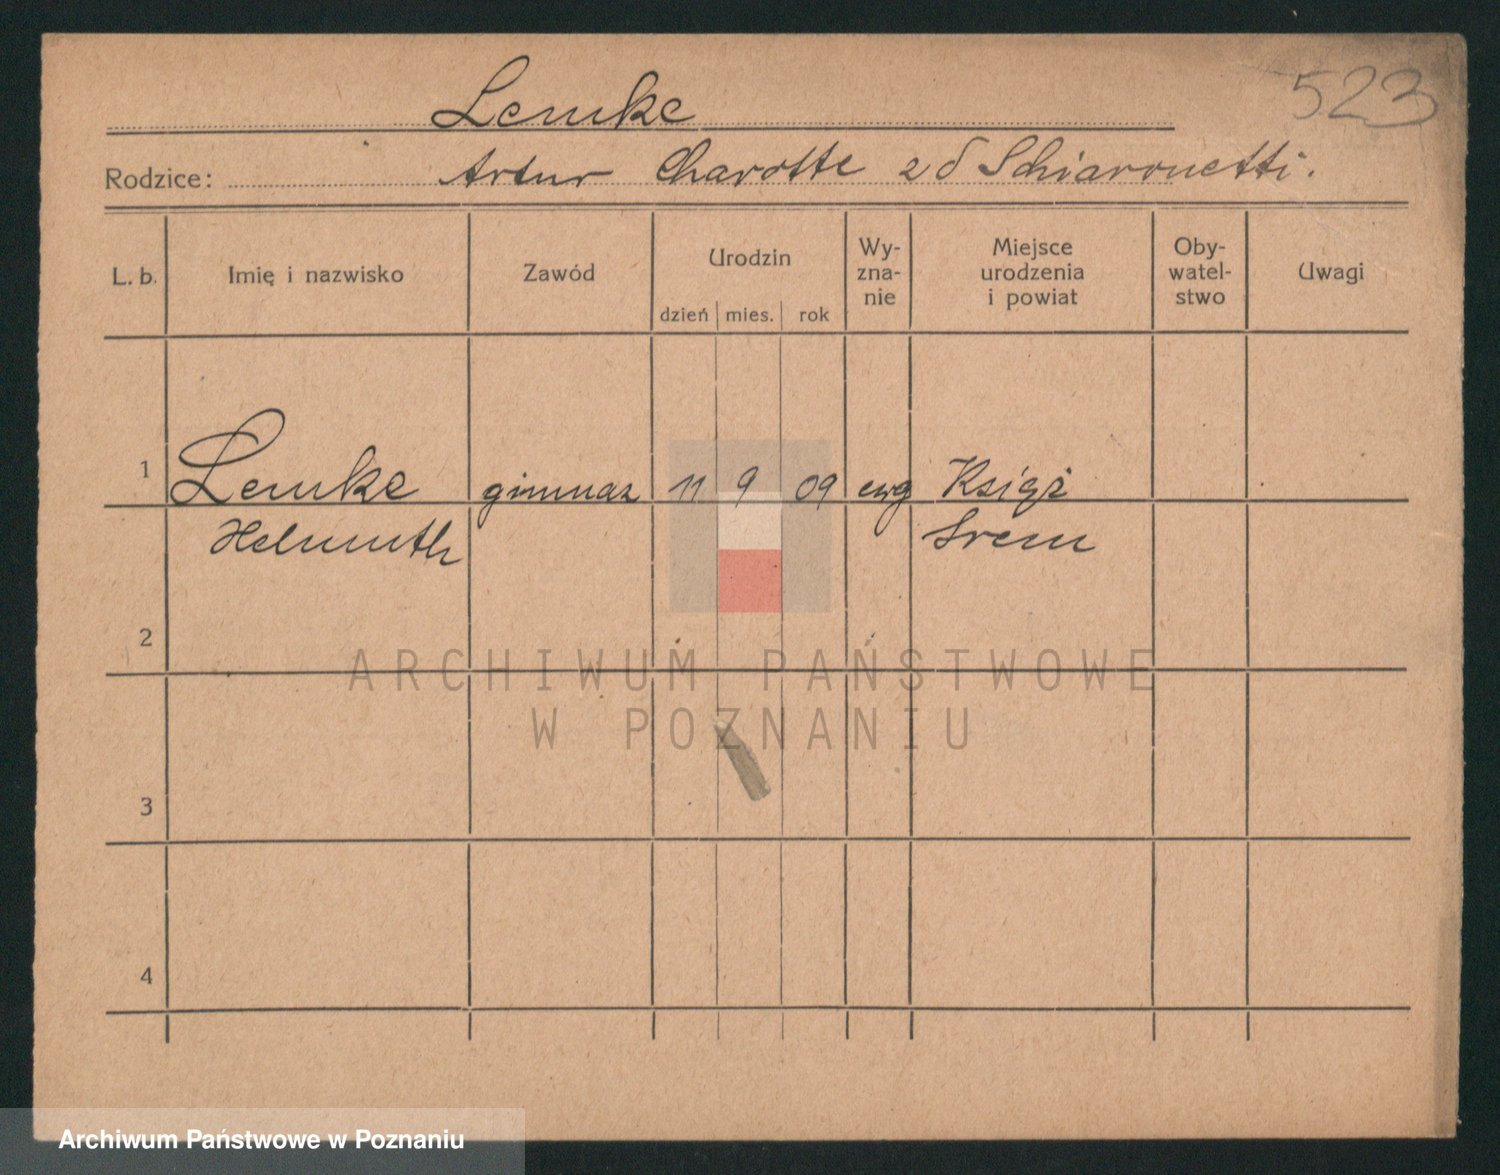 523
Lemke
Rodzice: Artur Charotte zd Schiaronetti.
L. b. Imię i nazwisko Zawód Urodzin dzień mies. rok Wy-zna-nie Miejsce urodzenia i powiat Oby-watel-stwo Uwagi
1 Lemke gimnaz 11 9 09 ewg Książ
Helmuth Srem
2
ARCHIWUM PAŃSTWOWE
W POZNANIU
3
4
Archiwum Państwowe w Poznaniu